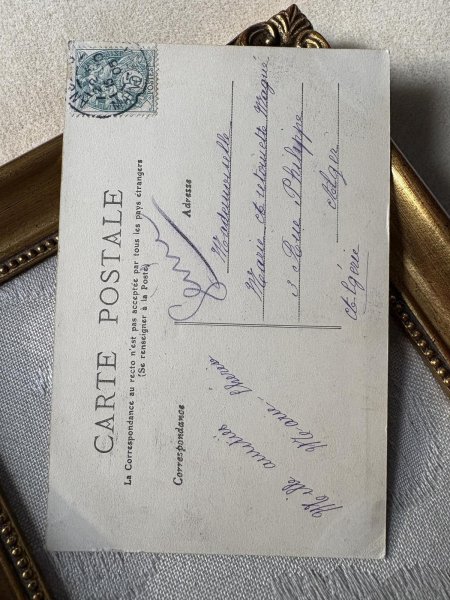 CARTE POSTALE
La Correspondance au recto n'est pas acceptée par tous les pays étrangers
(Se renseigner à la Poste)
Correspondance
Adresse
Mille amitiés
Mademoiselle
Marie Antoinette
Rue Philippe
Alger
Algérie